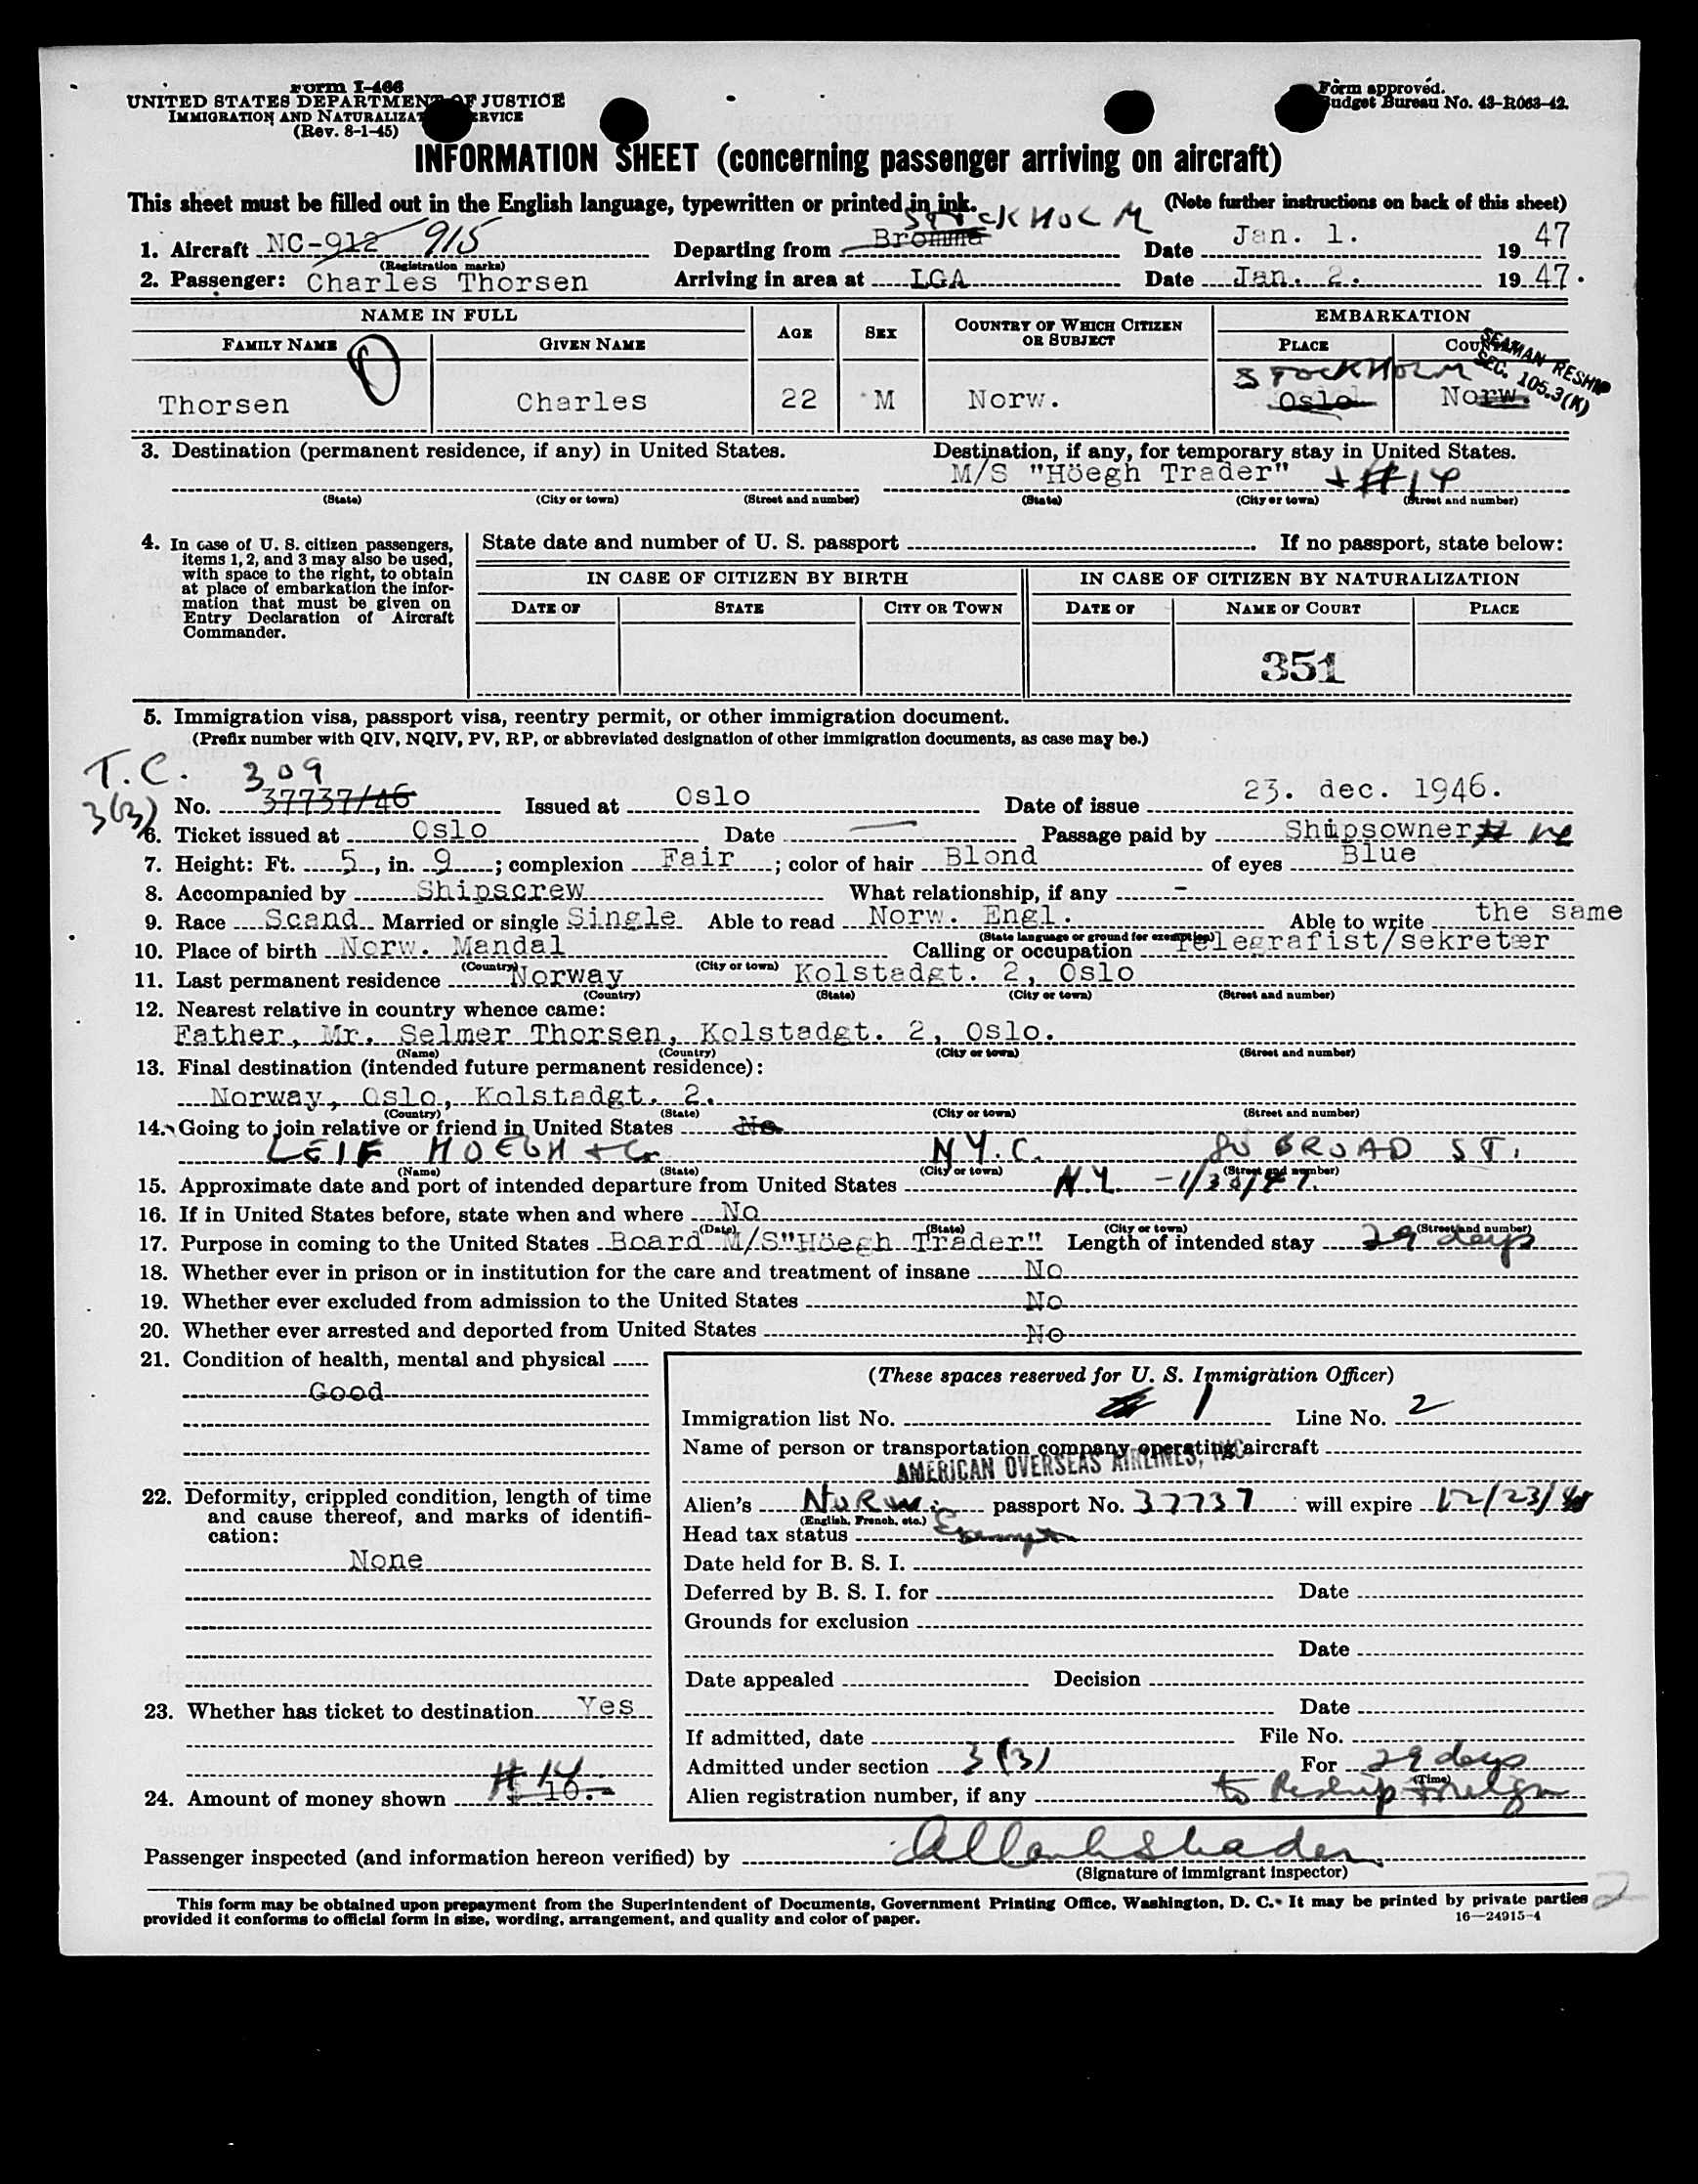 Form I-466
UNITED STATES DEPARTMENT OF JUSTICE
IMMIGRATION AND NATURALIZATION SERVICE
(Rev. 8-1-45)
Form approved.
Budget Bureau No. 43-R063-42.
INFORMATION SHEET (concerning passenger arriving on aircraft)
This sheet must be filled out in the English language, typewritten or printed in ink. (Note further instructions on back of this sheet)
STOCKHOLM
1. Aircraft NC-912 915 Departing from Bromma Date Jan. 1. 19 47
(Registration marks)
2. Passenger: Charles Thorsen Arriving in area at LGA Date Jan. 2. 19 47.
NAME IN FULL AGE SEX COUNTRY OF WHICH CITIZEN OR SUBJECT EMBARKATION
FAMILY NAME GIVEN NAME PLACE COUNTRY
SEAMAN RESHIP
SEC. 105.3(K)
STOCKHOLM
Thorsen Charles 22 M Norw. Oslo Norw.
3. Destination (permanent residence, if any) in United States. Destination, if any, for temporary stay in United States.
M/S "Höegh Trader" + #14
(State) (City or town) (Street and number) (State) (City or town) (Street and number)
4. In case of U. S. citizen passengers, items 1, 2, and 3 may also be used, with space to the right, to obtain at place of embarkation the information that must be given on Entry Declaration of Aircraft Commander.
State date and number of U. S. passport If no passport, state below:
IN CASE OF CITIZEN BY BIRTH IN CASE OF CITIZEN BY NATURALIZATION
DATE OF STATE CITY OR TOWN DATE OF NAME OF COURT PLACE
351
5. Immigration visa, passport visa, reentry permit, or other immigration document.
(Prefix number with QIV, NQIV, PV, RP, or abbreviated designation of other immigration documents, as case may be.)
T.C. 309
3(3) No. 37737/46 Issued at Oslo Date of issue 23. dec. 1946.
6. Ticket issued at Oslo Date — Passage paid by Shipsowner
7. Height: Ft. 5, in. 9; complexion Fair; color of hair Blond of eyes Blue
8. Accompanied by Shipscrew What relationship, if any -
9. Race Scand. Married or single Single Able to read Norw. Engl. Able to write the same
(State language or ground for exemption)
10. Place of birth Norw. Mandal Calling or occupation Telegrafist/sekretær
(Country) (City or town)
11. Last permanent residence Norway Kolstadgt. 2, Oslo
(Country) (State) (City or town) (Street and number)
12. Nearest relative in country whence came:
Father, Mr. Selmer Thorsen, Kolstadgt. 2, Oslo.
(Name) (Country) (City or town) (Street and number)
13. Final destination (intended future permanent residence):
Norway, Oslo, Kolstadgt. 2.
(Country) (State) (City or town) (Street and number)
14. Going to join relative or friend in United States No
LEIF HOEGH + Co. N.Y.C. 80 BROAD ST.
(Name) (State) (City or town) (Street and number)
15. Approximate date and port of intended departure from United States N.Y. - 1/30/47.
16. If in United States before, state when and where No
(Date) (State) (City or town) (Street and number)
17. Purpose in coming to the United States Board M/S"Höegh Trader" Length of intended stay 29 days
18. Whether ever in prison or in institution for the care and treatment of insane No
19. Whether ever excluded from admission to the United States No
20. Whether ever arrested and deported from United States No
21. Condition of health, mental and physical
Good
22. Deformity, crippled condition, length of time and cause thereof, and marks of identification:
None
23. Whether has ticket to destination Yes
# 14
24. Amount of money shown $ 10.-
(These spaces reserved for U. S. Immigration Officer)
Immigration list No. 1 Line No. 2
Name of person or transportation company operating aircraft
AMERICAN OVERSEAS AIRLINES, INC
Alien's Norw. passport No. 37737 will expire 12/23/48
(English, French, etc.)
Head tax status Exempt
Date held for B. S. I.
Deferred by B. S. I. for Date
Grounds for exclusion
Date
Date appealed Decision
Date
If admitted, date File No.
Admitted under section 3(3) For 29 days
(Time)
Alien registration number, if any to Reship foreign
Passenger inspected (and information hereon verified) by
(Signature of immigrant inspector)
This form may be obtained upon prepayment from the Superintendent of Documents, Government Printing Office, Washington, D. C. It may be printed by private parties
provided it conforms to official form in size, wording, arrangement, and quality and color of paper.
16—24915-4
2